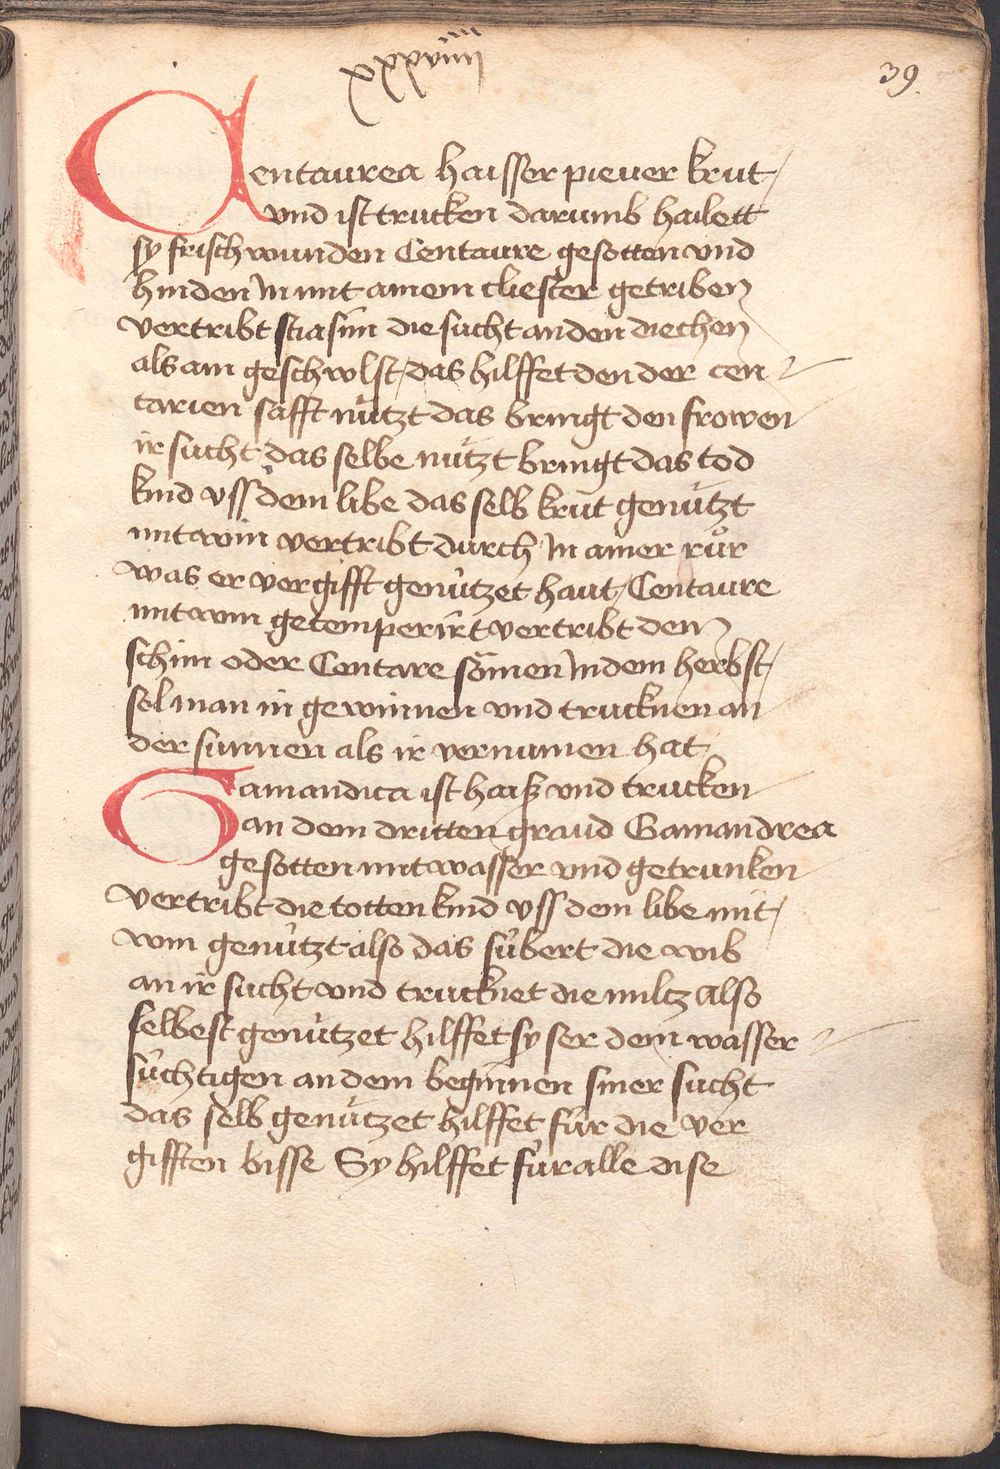 xxxviiii
39
Centaurea haisser pieuer krut
vnd ist trucken darumb hailett
sy frisch wunden Centaure gesotten vnd
hinden in mit ainem cliester getriben
vertribt sciasim die sucht an den diechen
als ain geschwlst das hilffet den der cen
tarien safft nützt das bringt den frowen
ir sucht das selbe nützt bringt das tod
kind vss dem libe das selb krut genützt
mit win vertribt durch in ainer růr
was er vergifft genützet haut Centaure
mit win getemperirt vertribt den
schim oder Centare sömen in dem herbst
sol man in gewinnen vnd trucknen an
der sunnen als ir vernumen hat
Gamandica ist haiß vnd trucken
an dem dritten graud Gamandrea
gesotten mit wasser vnd getrunken
vertribt die totten kind vss dem libe mit
win genützt also das sübert die wib
an ir sucht vnd trucknet die miltz also
selbest genützet hilffet sy ser dem wasser
süchtigen an dem beginnen siner sucht
das selb genützet hilffet für die ver
gifften bisse Sy hilffet für alle dise